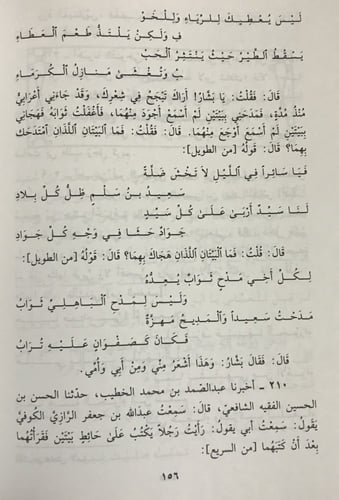 لَيْسَ يُعْطِيكَ لِلرَّجَاءِ وَلِلْخَوْ
فِ وَلَكِنْ يَلْتَذُّ طَعْمَ ٱلْعَطَاءِ
يَسْقُطُ ٱلطَّيْرُ حَيْثُ يَنْتَثِرُ ٱلْحَبْـ
بُ وَتُغْشَىٰ مَنَازِلُ ٱلْكُرَمَاءِ
قَالَ: فَقُلْتُ: يَا بَشَّارُ! أَرَاكَ تَبْجَحُ فِي شِعْرِكَ، وَقَدْ جَاءَنِي أَعْرَابِيٌّ
مُنْذُ مُدَّةٍ، فَمَدَحَنِي بِبَيْتَيْنِ لَمْ أَسْمَعْ أَجْوَدَ مِنْهُمَا، فَأَغْفَلْتُ ثَوَابَهُ فَهَجَانِي
بِبَيْتَيْنِ لَمْ أَسْمَعْ أَوْجَعَ مِنْهُمَا. قَالَ: فَقُلْتُ: فَمَا ٱلْبَيْتَانِ ٱللَّذَانِ ٱمْتَدَحَكَ
بِهِمَا؟ قَالَ: قَوْلُهُ [من الطويل]:
فَيَا سَائِراً فِي ٱللَّيْلِ لَا تَخْشَ ضَلَّةً
سَعِيدُ بْنُ سَلْمٍ ظِلُّ كُلِّ بِلَادِ
لَنَا سَيِّدٌ أَرْبَىٰ عَلَىٰ كُلِّ سَيِّدٍ
جَوَادٌ حَثَا فِي وَجْهِ كُلِّ جَوَادِ
قَالَ: قُلْتُ: فَمَا ٱلْبَيْتَانِ ٱللَّذَانِ هَجَاكَ بِهِمَا؟ قَالَ: قَوْلُهُ [من الطويل]:
لِكُلِّ أَخِي مَدْحٍ ثَوَابٌ يُعِدُّهُ
وَلَيْسَ لِمَدْحِ ٱلْبَاهِلِيِّ ثَوَابُ
مَدَحْتُ سَعِيداً وَٱلْمَدِيحُ مَهَزَّةٌ
فَكَانَ كَصَفْوَانٍ عَلَيْهِ تُرَابُ
قَالَ: فَقَالَ بَشَّارٌ: وَهَذَا أَشْعَرُ مِنِّي وَمِنْ أَبِي وَأُمِّي.
٢١٠ ـ أخبرنا عبدالصَّمد بن محمد الخطيب، حدَّثنا الحسن بن
الحسين الفقيه الشَّافعيّ، قالَ: سَمِعْتُ عبدَالله بن جعفر الرَّازيَّ الكُوفيَّ
يَقُولُ: سَمِعْتُ أبي يقولُ: رَأَيْتُ رَجُلاً يَكْتُبُ عَلَىٰ حَائِطٍ بَيْتَيْنِ فَقَرَأْتُهُمَا
بَعْدَ أَنْ كَتَبَهُمَا [من السريع]:
١٥٦